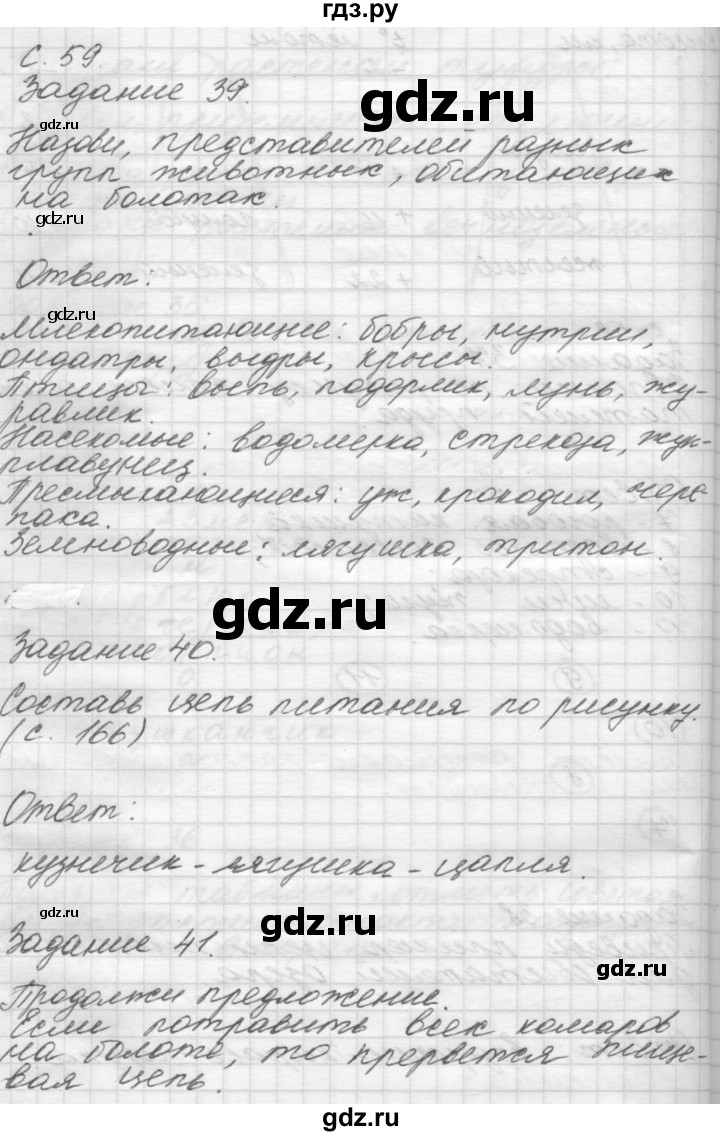 гдз.ру
с. 59.
Задание 39.
gdz.ru
Назови, представителей разных
групп животных, обитающих
на болотах.
gdz.ru
Ответ:
Млекопитающие: бобры, нутрии,
ондатры, выдры, крысы.
Птицы: выпь, подорлик, лунь, жу-
равлик.
Насекомые: водомерка, стрекоза, жук-
плавунец.
Пресмыкающиеся: уж, крокодил, чере-
паха.
Земноводные: лягушка, тритон.
gdz.ru
Задание 40.
Составь цепь питания по рисунку.
(с. 166)
Ответ:
кузнечик - лягушка - цапля.
gdz.ru
gdz.ru
Задание 41.
gdz.ru
Продолжи предложение.
Если потравить всех комаров
на болоте, то прервется пище-
вая цепь.
gdz.ru